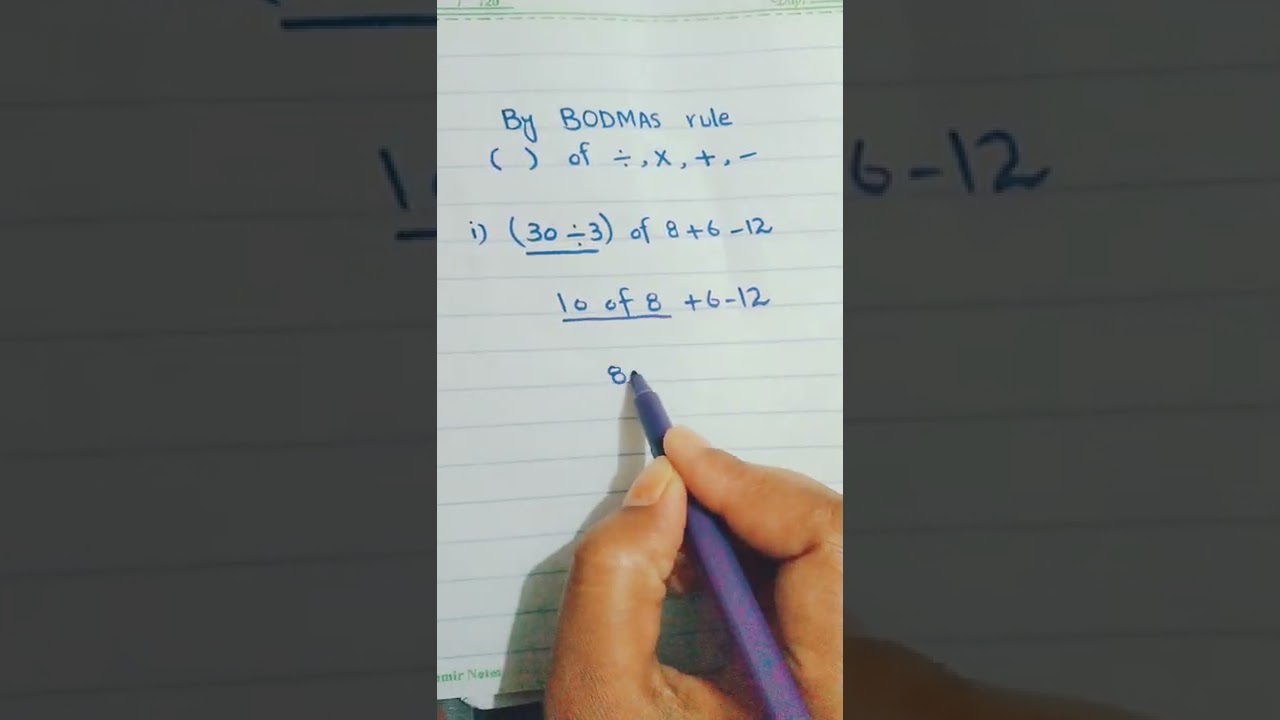 By BODMAS rule
( ) of ÷, ×, +, -
i) (30 ÷ 3) of 8 + 6 - 12
10 of 8 + 6 - 12
8
mir Notes
6 - 12